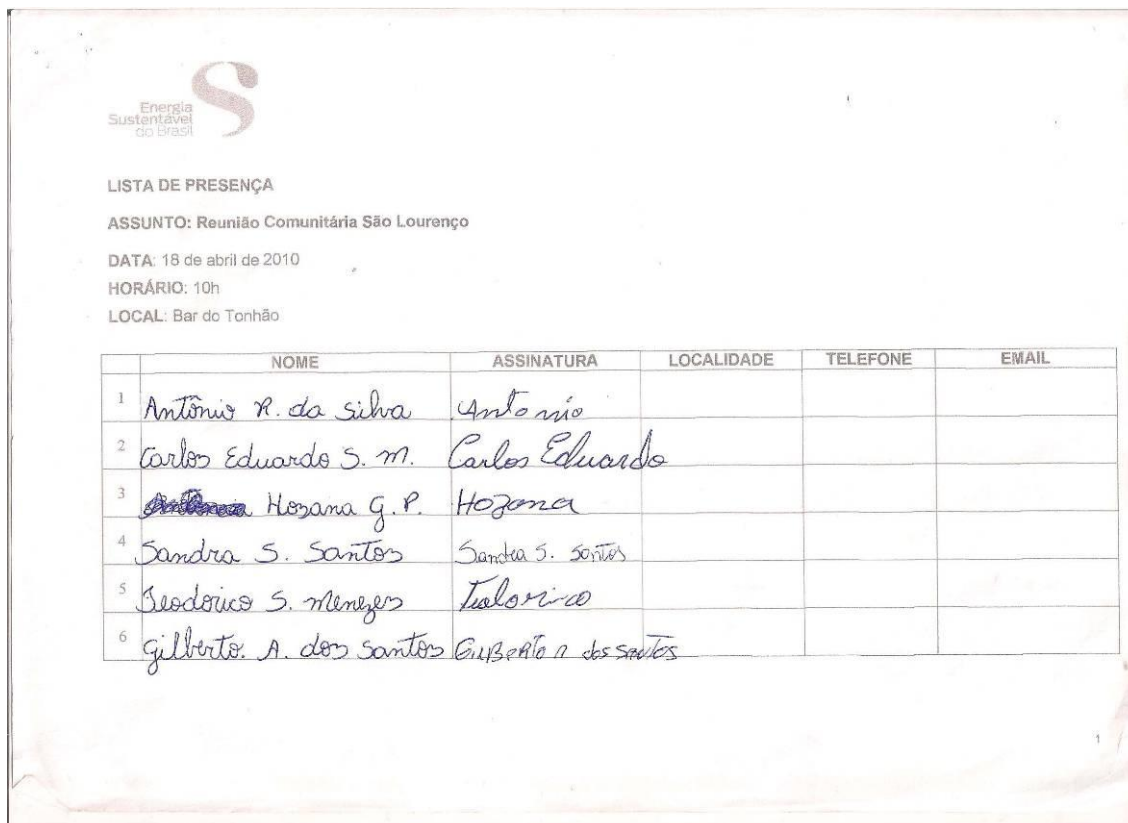 Energia
Sustentável
do Brasil
LISTA DE PRESENÇA
ASSUNTO: Reunião Comunitária São Lourenço
DATA: 18 de abril de 2010
HORÁRIO: 10h
LOCAL: Bar do Tonhão
NOME ASSINATURA LOCALIDADE TELEFONE EMAIL
1 Antônio R. da Silva Antonio
2 Carlos Eduardo S. M. Carlos Eduardo
3 Hozana G. P. Hozana
4 Sandra S. Santos Sandra S. Santos
5 Teodorico S. Menezes
6 Gilberto. A. dos Santos GilBERTO A dos SANTOS
1